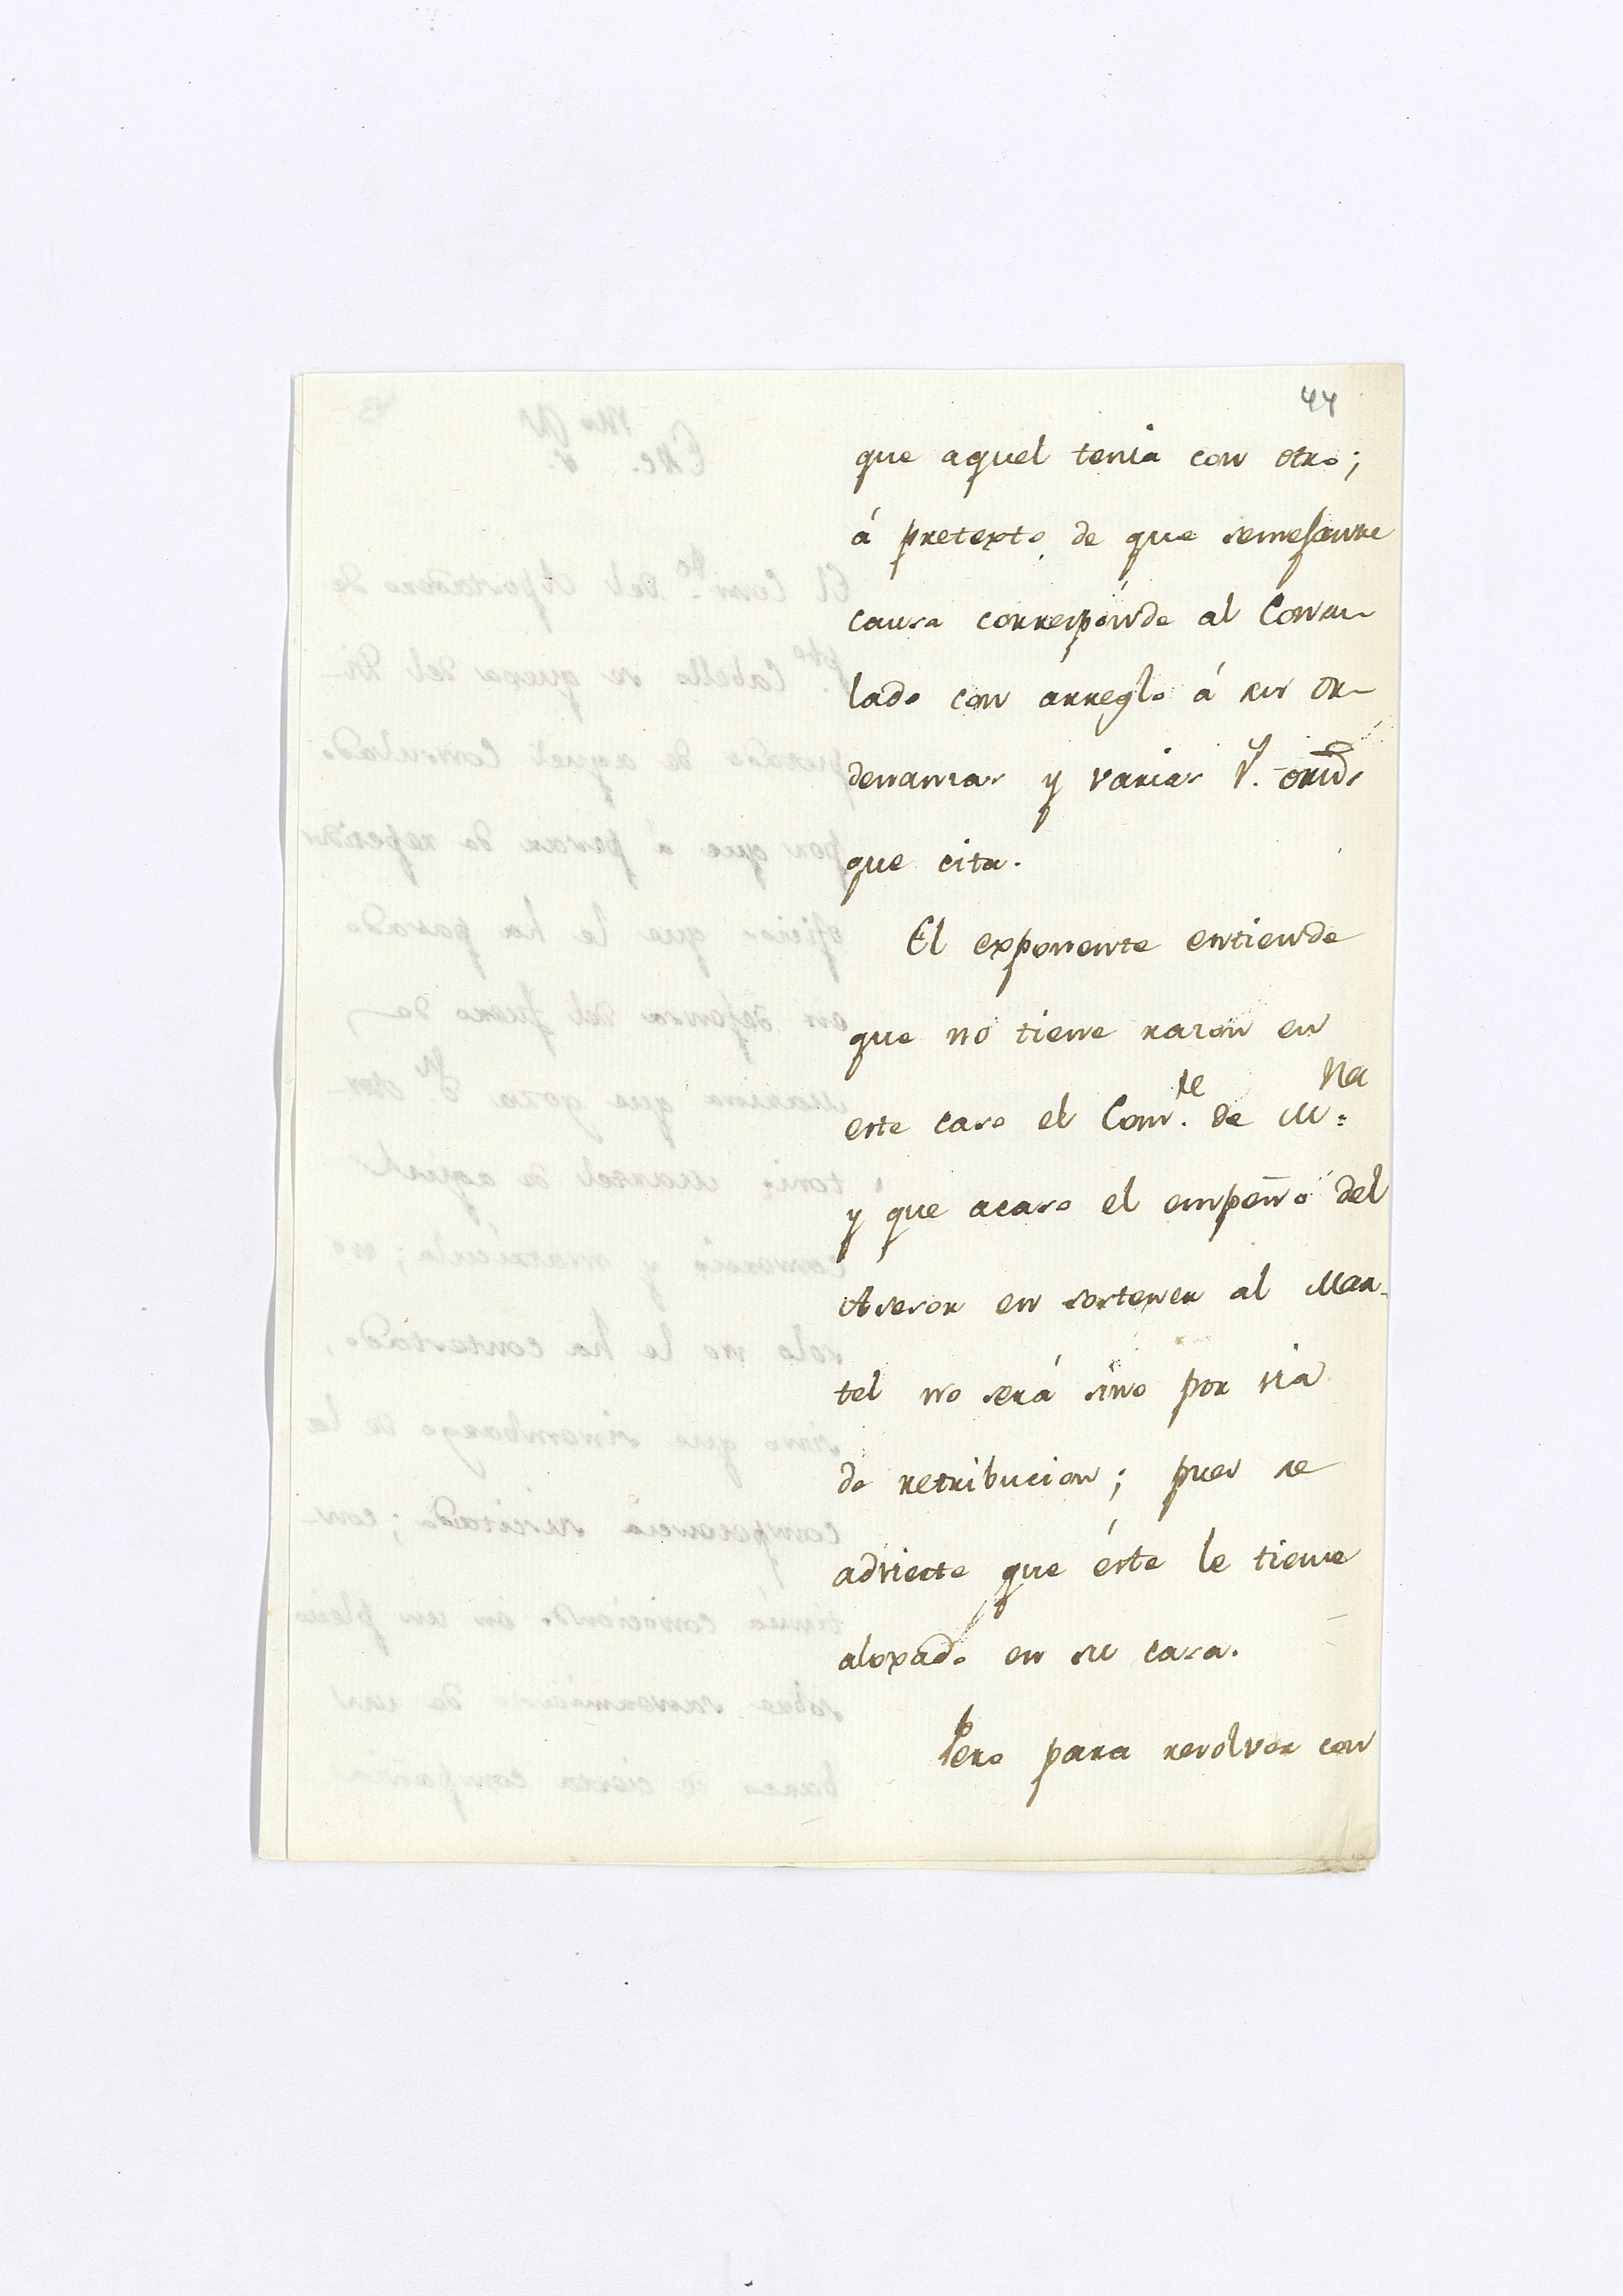 44
que aquel tenia con otro;
á pretexto de que semejante
causa corresponde al Consu-
lado con arreglo á sus or-
denanzas y varias r.^s ords
que cita.
El exponente entiende
que no tiene razon en
este caso el Com.^te de M.^na
y que acaso el empeño del
Asesor en sostener al Mar-
tel no será sino por via
de retribucion; pues se
advierte que éste le tiene
aloxado en su casa.
Pero para resolver con